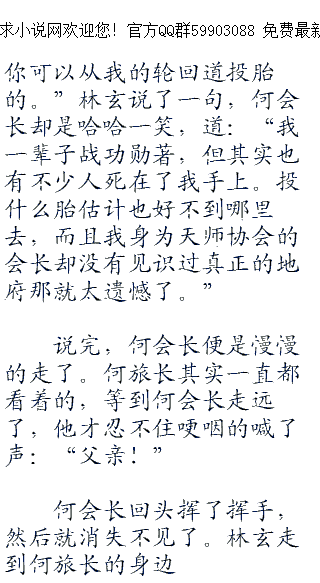 求小说网欢迎您！官方QQ群59903088 免费最新
你可以从我的轮回道投胎
的。”林玄说了一句，何会
长却是哈哈一笑，道：“我
一辈子战功勋著，但其实也
有不少人死在了我手上。投
什么胎估计也好不到哪里
去，而且我身为天师协会的
会长却没有见识过真正的地
府那就太遗憾了。”
说完，何会长便是漫漫
的走了。何旅长其实一直都
看着的，等到何会长走远
了，他才忍不住哽咽的喊了
声：“父亲！”
何会长回头挥了挥手，
然后就消失不见了。林玄走
到何旅长的身边